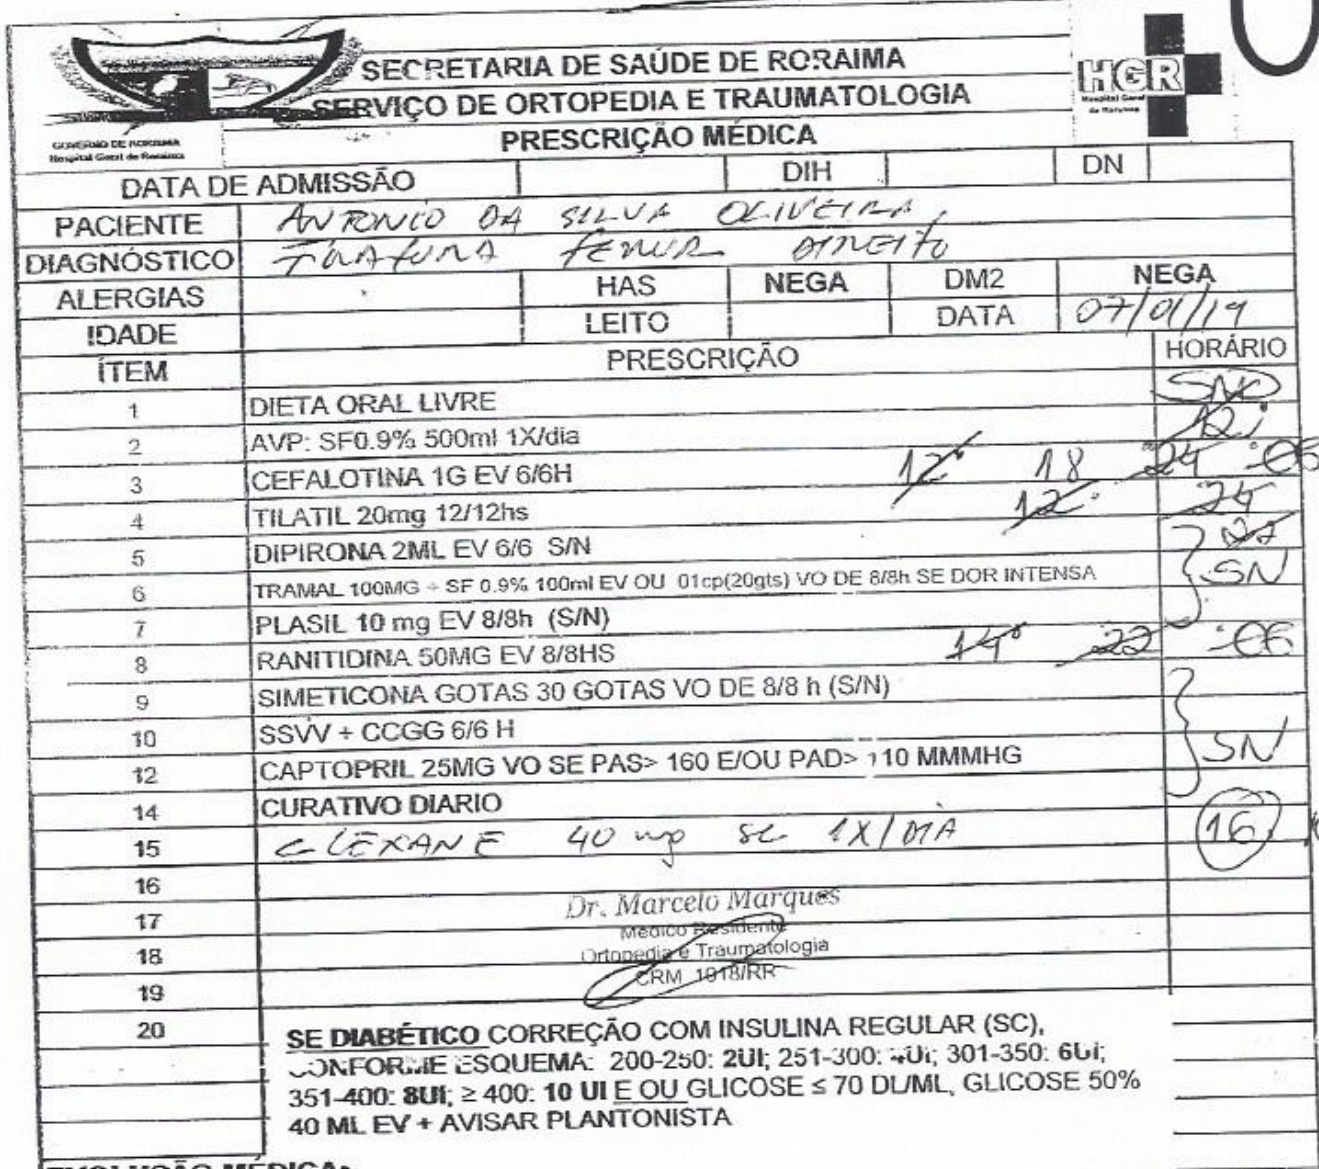 SECRETARIA DE SAÚDE DE RORAIMA
SERVIÇO DE ORTOPEDIA E TRAUMATOLOGIA
PRESCRIÇÃO MÉDICA
GOVERNO DE RORAIMA
Hospital Geral de Roraima
HGR
Hospital Geral
de Roraima
DATA DE ADMISSÃO DIH DN
PACIENTE ANTONIO DA SILVA OLIVEIRA
DIAGNÓSTICO FRATURA FEMUR DIREITO
ALERGIAS HAS NEGA DM2 NEGA
IDADE LEITO DATA 07/01/19
ÍTEM PRESCRIÇÃO HORÁRIO
1 DIETA ORAL LIVRE SND
2 AVP: SF0.9% 500ml 1X/dia 12
3 CEFALOTINA 1G EV 6/6H 12 18 24 06
4 TILATIL 20mg 12/12hs 12 24
5 DIPIRONA 2ML EV 6/6 S/N
6 TRAMAL 100MG + SF 0.9% 100ml EV OU 01cp(20gts) VO DE 8/8h SE DOR INTENSA SN
7 PLASIL 10 mg EV 8/8h (S/N)
8 RANITIDINA 50MG EV 8/8HS 14 22 06
9 SIMETICONA GOTAS 30 GOTAS VO DE 8/8 h (S/N)
10 SSVV + CCGG 6/6 H SN
12 CAPTOPRIL 25MG VO SE PAS> 160 E/OU PAD> 110 MMMHG
14 CURATIVO DIARIO
15 CLEXANE 40 mg SC 1X/DIA 16
16
17
18
19
20
Dr. Marcelo Marques
Médico Residente
Ortopedia e Traumatologia
CRM 1918/RR
SE DIABÉTICO CORREÇÃO COM INSULINA REGULAR (SC),
CONFORME ESQUEMA: 200-250: 2UI; 251-300: 4UI; 301-350: 6UI;
351-400: 8UI; ≥ 400: 10 UI E OU GLICOSE ≤ 70 DL/ML, GLICOSE 50%
40 ML EV + AVISAR PLANTONISTA
EVOLUÇÃO MÉDICA: